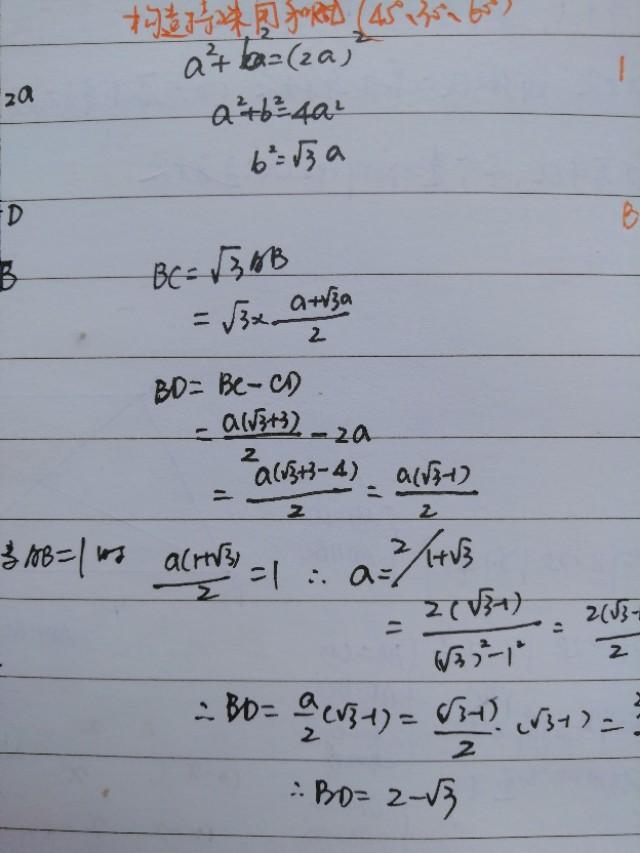 构造特殊图形(45°、30°、60°)
a²+b²=(2a)²
1
2a
a²+b²=4a²
b²=√3 a
D
B
B
BC=√3 AB
=√3× a+√3a/2
BD=BC-CD
=a(√3+3)/2-2a
=a(√3+3-4)/2=a(√3-1)/2
当AB=1时 a(1+√3)/2=1 ∴ a=2/1+√3
=2(√3-1)/(√3)²-1²=2(√3-1/2
∴BD=a/2(√3-1)=(√3-1)/2·(√3-1)=
∴BD=2-√3